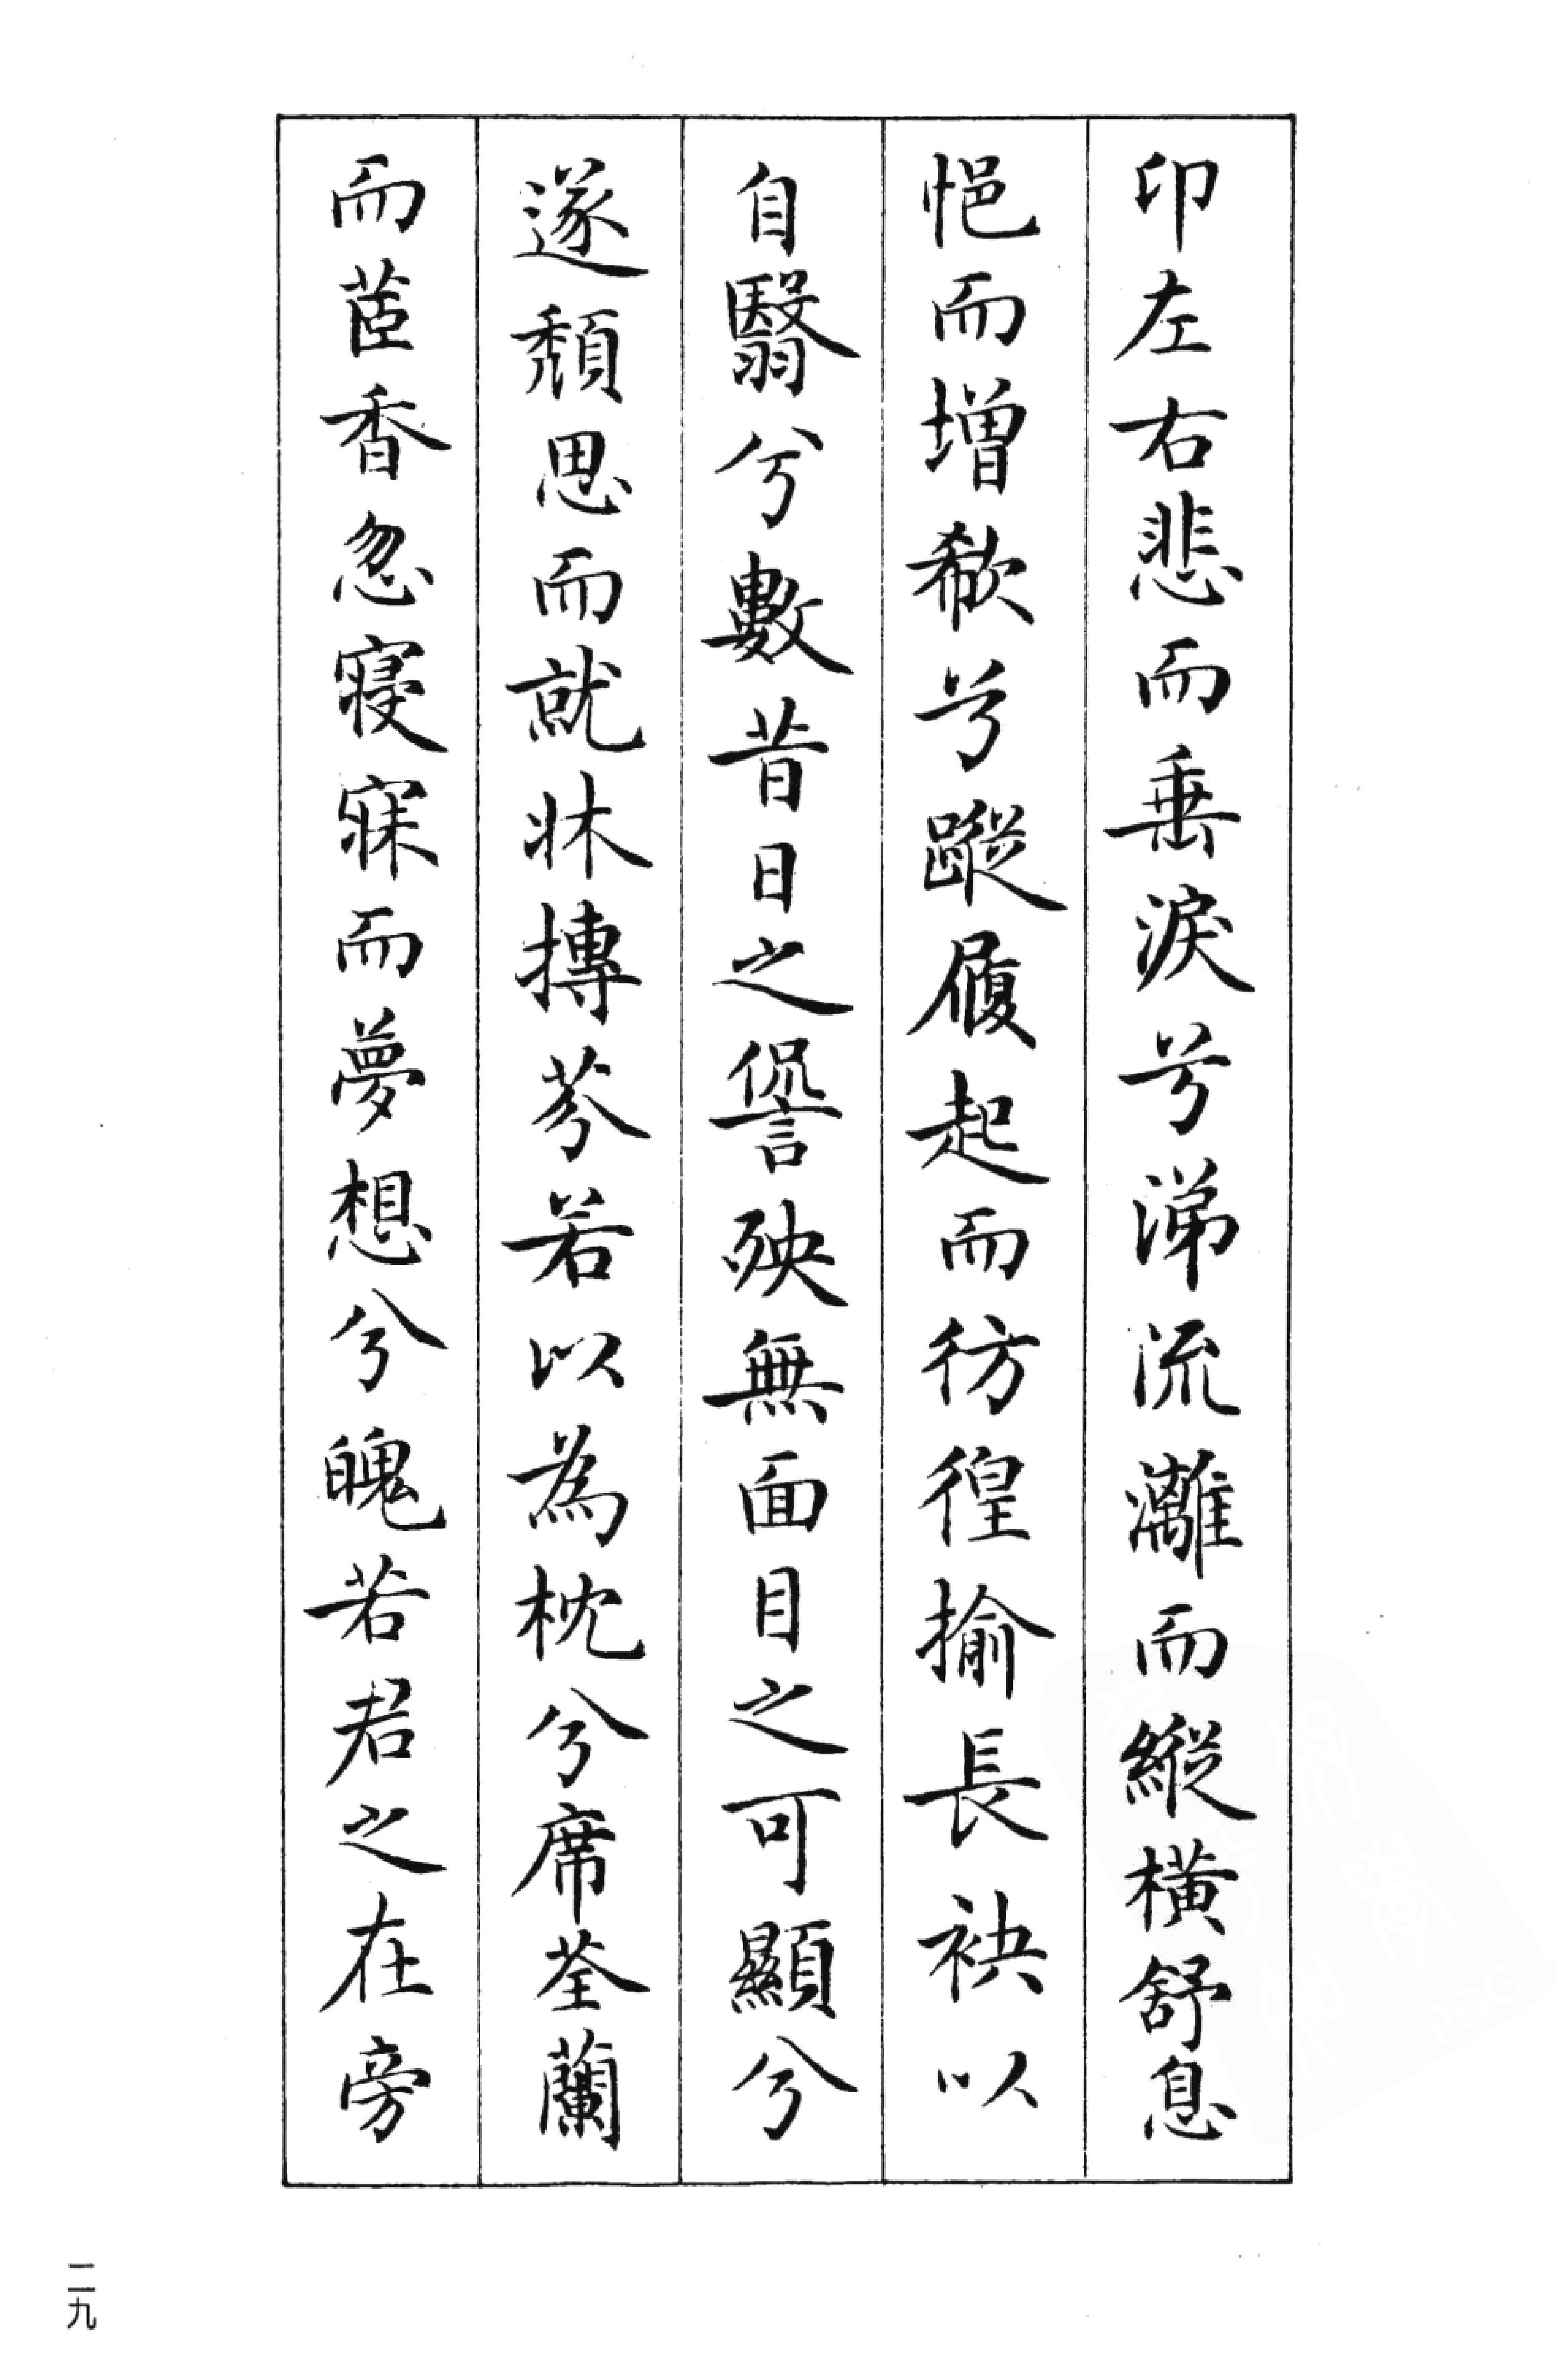 卬左右悲而垂淚兮涕流灕而縱橫舒息
悒而增欷兮蹝履起而彷徨揄長袂以
自翳兮數昔日之諐殃無面目之可顯兮
遂頹思而就牀摶芬若以為枕兮席荃蘭
而茝香忽寑寐而夢想兮魄若君之在旁
二九